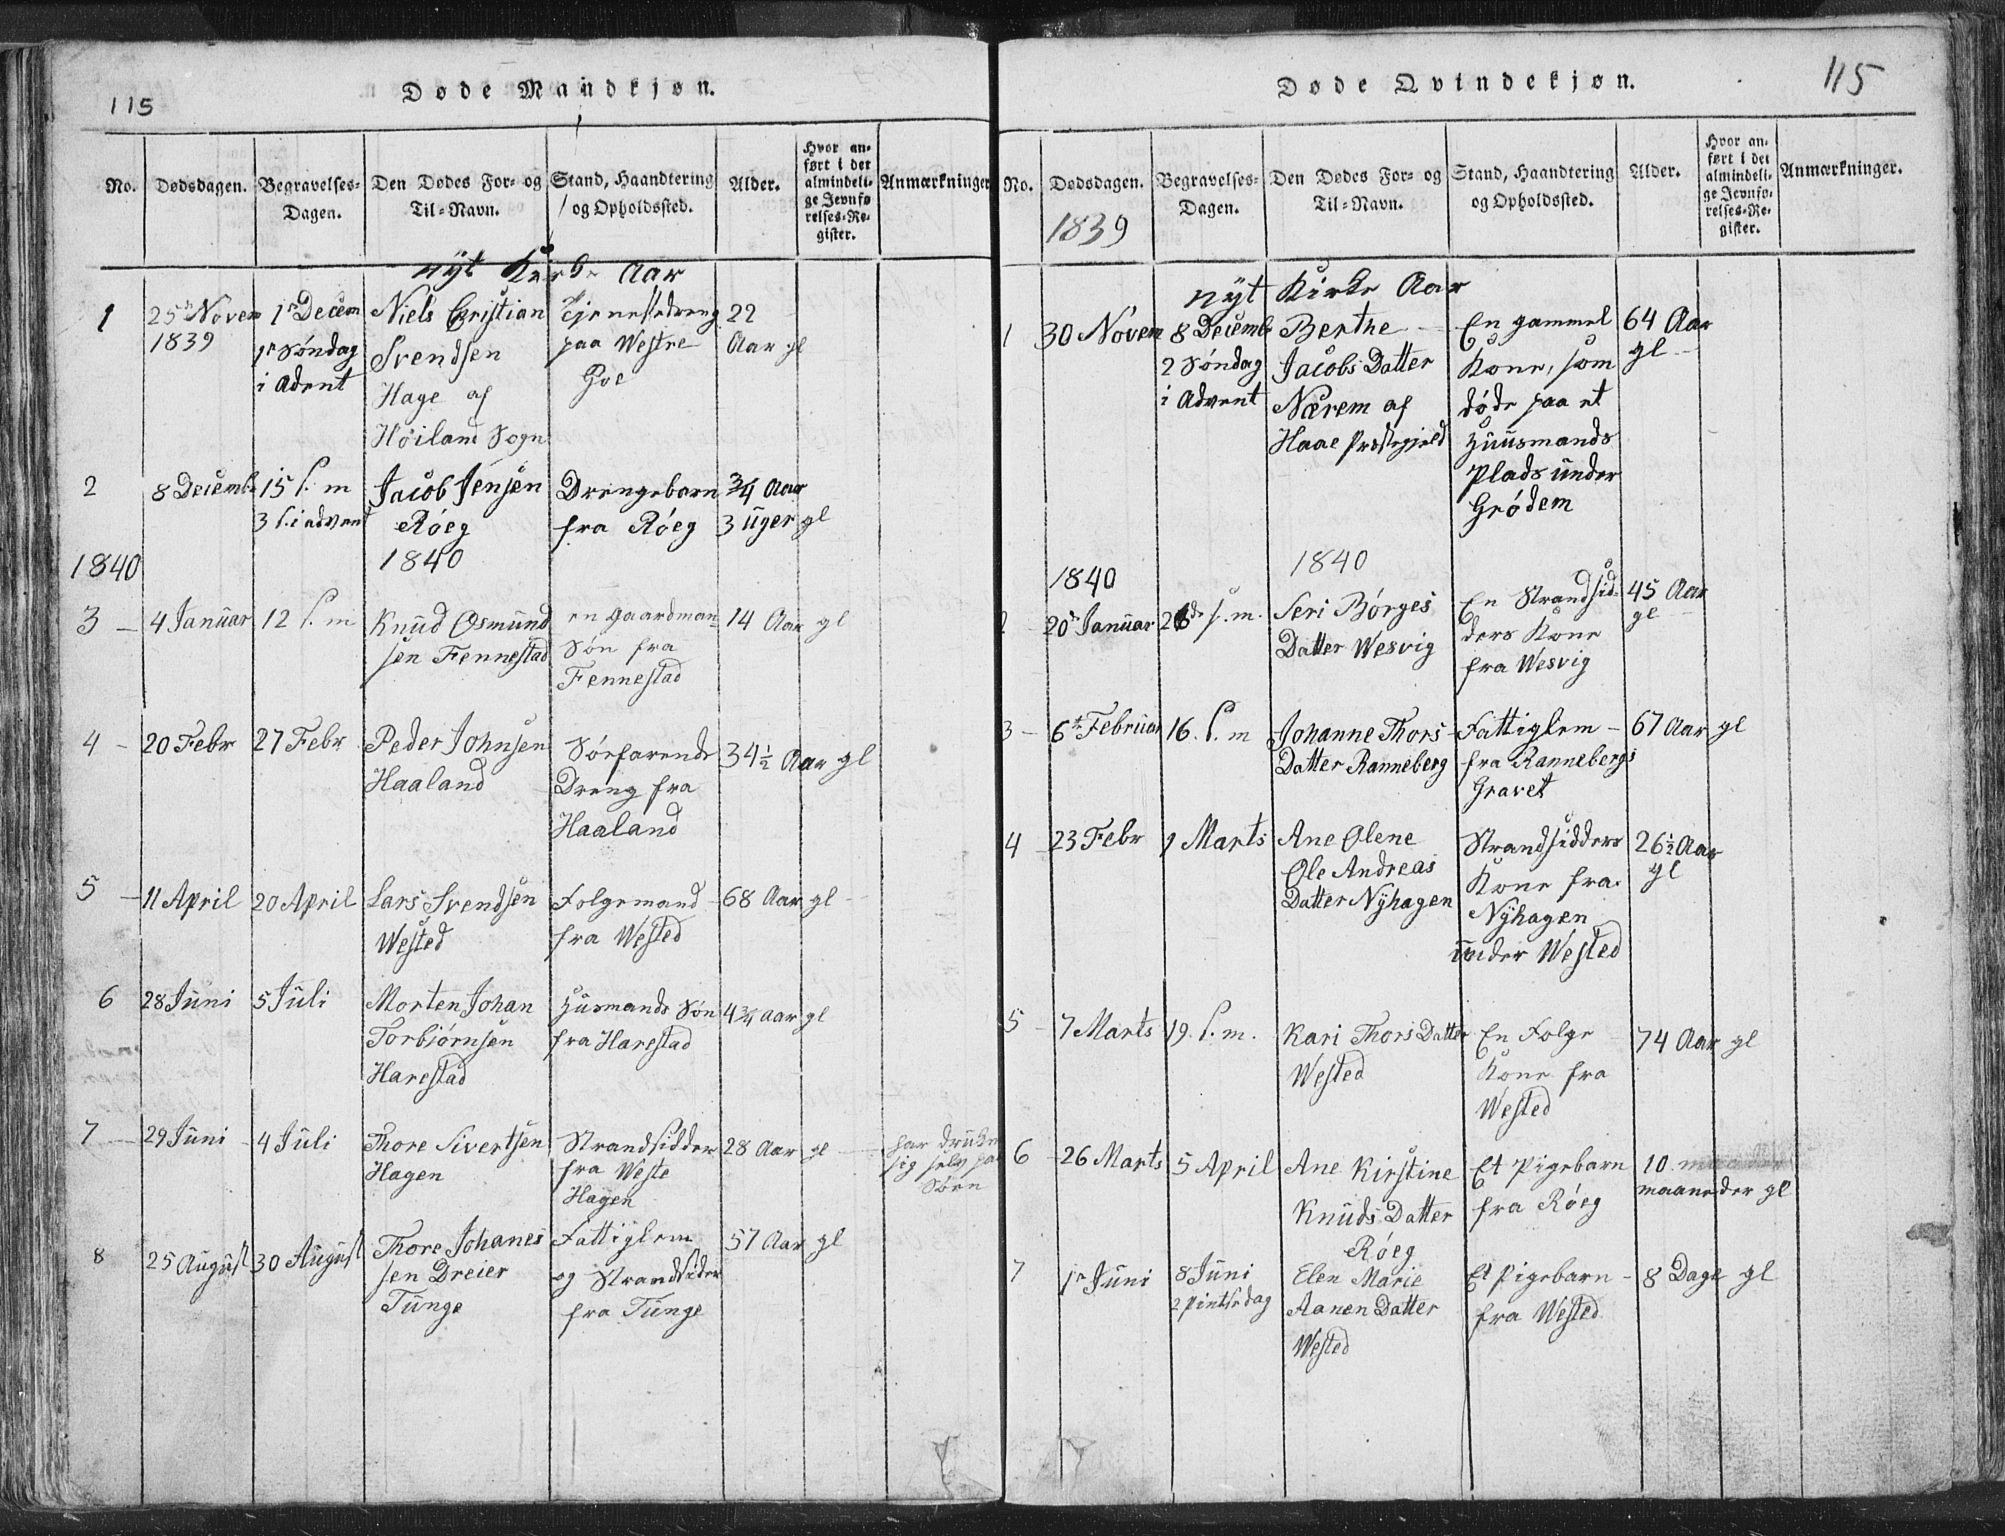 115
Døde Mandkjøn.
No.
Dødsdagen.
Begravelses-
Dagen.
Den Dødes For- og
Til-Navn.
Stand, Haandtering
og Opholdssted.
Alder.
Hvor an-
ført i det
almindeli-
ge Jevnfø-
relses-Re-
gister.
Anmærkninger
nyt Kirke Aar
1
25 Novem
1839
1r Decem
1r Søndag
i Advent
Niels Christian
Svendsen
Hage af
Høiland Sogn
Tjenestedreng
paa Westre
Goe
22
Aar gl
2
8 Decemb
15 s. m
3 s. i advent
Jacob Jensen
Røeg
Drengebarn
fra Røeg
3/4 Aar
3 uger gl
1840
1840
3
4 Januar
12 s. m
Knud Osmund
sen Fennestad
en gaardman
Søn fra
Fennestad
14 Aar gl
4
20 Febr
27 Febr
Peder Johnsen
Haaland
Sørfarende
Dreng fra
Haaland
34 1/2 Aar gl
5
11 April
20 April
Lars Svendsen
Wested
Folgemand
fra Wested
68 Aar gl
6
28 Juni
5 Juli
Morten Johan
Torbiørnsen
Harestad
Husmands Søn
fra Harestad
4 3/4 aar gl
7
29 Juni
4 Juli
Thore Sivertsen
Hagen
Strandsidder
fra Weste
Hagen
28 Aar gl
har drukn
sig selv paa
Søen
8
25 August
30 August
Thore Johanes
sen Dreier
Tunge
Fattiglem
og Strandsider
fra Tunge
57 Aar gl
115
Døde Qvindekjøn.
No.
Dødsdagen.
1839
Begravelses-
Dagen.
Den Dødes For- og
Til-Navn.
Stand, Haandtering
og Opholdssted.
Alder.
Hvor an-
ført i det
almindeli-
ge Jevnfø-
relses-Re-
gister.
Anmærkninger.
nyt Kirke Aar
1
30 Novem
8 Decemb
2 Søndag
i Advent
Berthe
Jacobs Datter
Nærem af
Haae Prestegjeld
En gammel
Kone, som
døde paa et
Huusmands
Plads under
Grødem
64 Aar
gl
1840
1840
2
20 Januar
26de s. m.
Seri Børges
Datter Wesvig
En Strandsid
ders Kone
fra Wesvig
45 Aar
gl
3
6te Februar
16. s. m
Johanne Thors
Datter Ranneberg
Fattiglem
fra Rannebergs
Gravet
67 Aar gl
4
23 Febr
1 Marts
Ane Olene
Ole Andreas
Datter Nyhagen
Strandsidders
Kone fra
Nyhagen
under Wested
26 1/2 Aar
gl
5
7 Marts
19. s. m.
Kari Thors Datter
Wested
En Folge
Kone fra
Wested
74 Aar gl
6
26 Marts
5 April
Ane Kirstine
Knuds Datter
Røeg
Et Pigebarn
fra Røeg
10
maaneder gl
7
1r Juni
8 Juni
2 Pintsedag
Elen Marie
Aanen Datter
Wested
Et Pigebarn
fra Wested
8 Dage gl